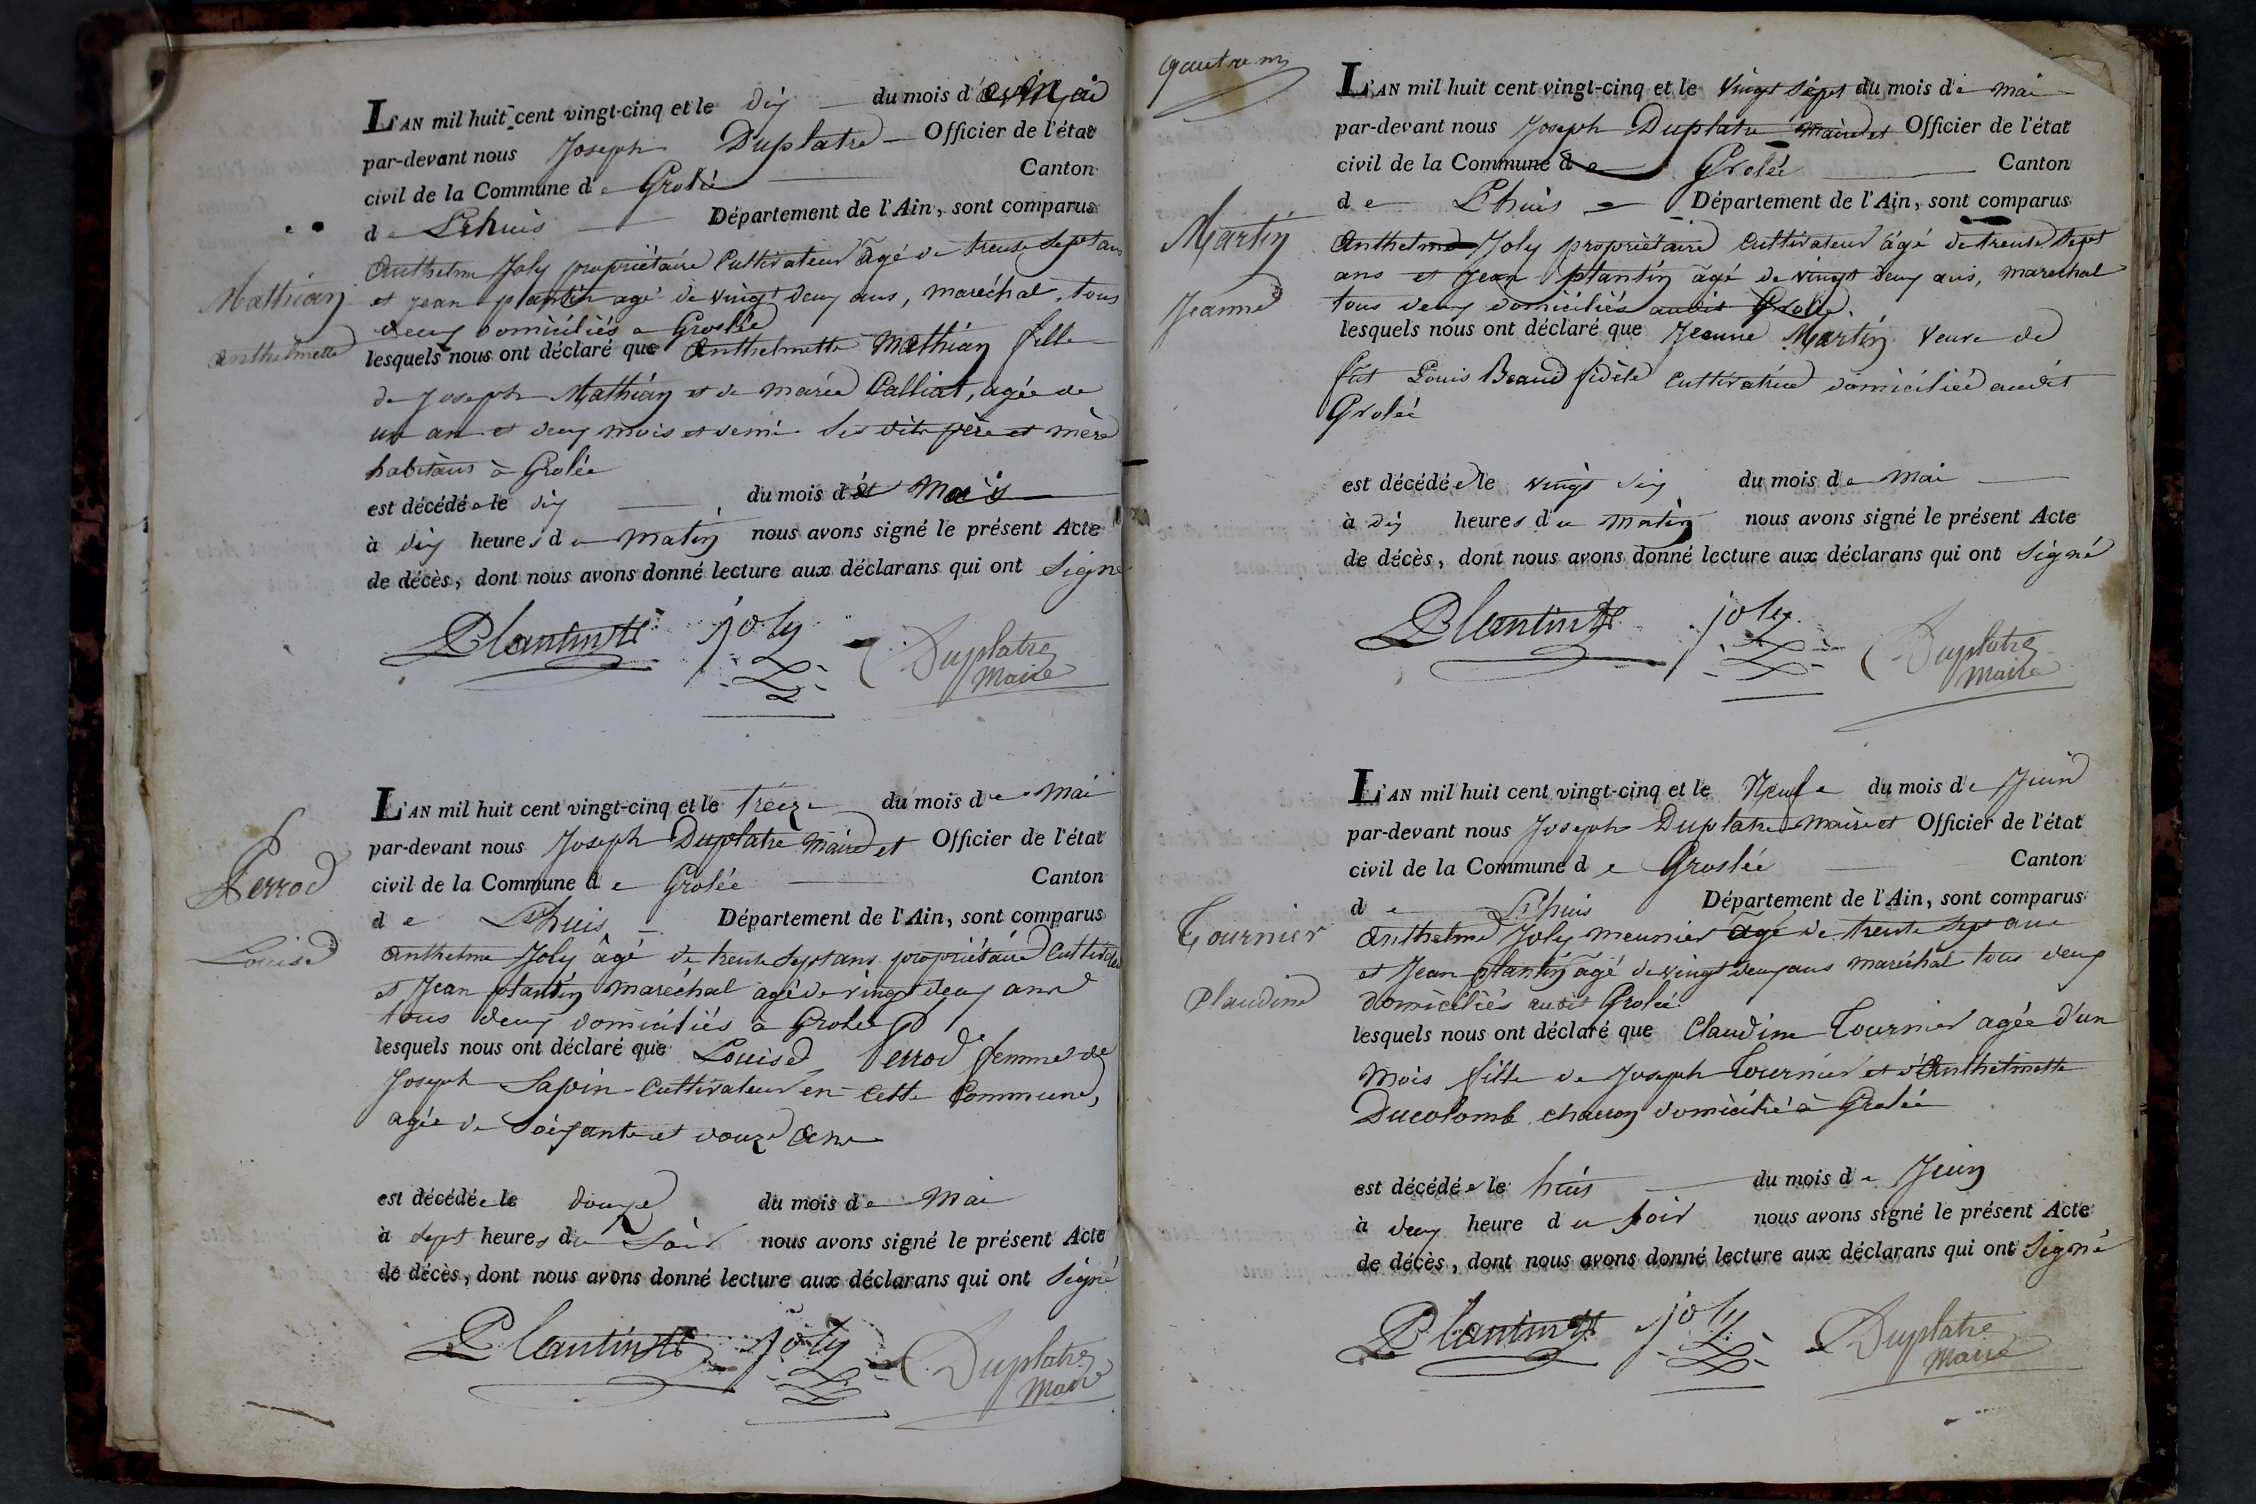 Mathian
anthelmette
L'AN mil huit cent vingt-cinq et le dix du mois d
par-devant nous Joseph Duplatre Officier de l'état
civil de la Commune de Grolée Canton
de Lhuis Département de l'Ain, sont comparus
Anthelme Joly propriétaire Cultivateur âgé de trente sept ans
et jean plantin agé de vingt deux ans, maréchal, tous
deux domiciliés a Groslée
lesquels nous ont déclaré que Anthelmette Mathian fille
de joseph Mathian et de marie Calliat, agée de
un an et deux mois et demi ses dits père et mère
habitans à Grolée
est décédée le dix du mois de Mai
à dix heures du matin nous avons signé le présent Acte
de décès, dont nous avons donné lecture aux déclarans qui ont signé
Plantin joly Duplatre
maire
Perrod
Louise
L'AN mil huit cent vingt-cinq et le treize du mois de mai
par-devant nous Joseph Duplatre maire et Officier de l'état
civil de la Commune de Grolée Canton
de Lhuis Département de l'Ain, sont comparus
Anthelme Joly âgé de trente sept ans propriétaire Cultivateur
et Jean plantin maréchal agé de vingt deux ans
tous deux domiciliés a Grolée
lesquels nous ont déclaré que Louise Perrod femme de
Joseph Savin Cultivateur en cette Commune,
agée de soixante et douze ans
est décédée le douze du mois de Mai
à sept heures du soir nous avons signé le présent Acte
de décès, dont nous avons donné lecture aux déclarans qui ont signé
Plantin joly Duplatre
maire
Martin
Jeanne
L'AN mil huit cent vingt-cinq et le vingt sept du mois de mai
par-devant nous Joseph Duplatre maire et Officier de l'état
civil de la Commune de Grolée Canton
de Lhuis Département de l'Ain, sont comparus
Anthelme Joly propriétaire cultivateur âgé de trente sept
ans et Jean plantin agé de vingt deux ans, marechal
tous deux domiciliés audit Grolée.
lesquels nous ont déclaré que Jeanne Martin veuve de
fût Louis Beaud fidèle cultivatrice domiciliée audit
Grolée
est décédée le vingt six du mois de mai
à dix heures du matin nous avons signé le présent Acte
de décès, dont nous avons donné lecture aux déclarans qui ont signé
Plantin joly Duplatre
maire
Tournier
Claudine
L'AN mil huit cent vingt-cinq et le Neuf du mois de Juin
par-devant nous Joseph Duplatre maire et Officier de l'état
civil de la Commune de Groslée Canton
de Lhuis Département de l'Ain, sont comparus
Anthelme Joly meunier âgé de trente sept ans
et Jean plantin agé de vingt deux ans maréchal tous deux
domiciliés audit Grolée
lesquels nous ont déclaré que Claudine Tournier agée d'un
Mois fille de Joseph Tournier et d'Anthelmette
Ducolomb charron domicilié à Grolée
est décédée le huit du mois de Juin
à deux heure du soir nous avons signé le présent Acte
de décès, dont nous avons donné lecture aux déclarans qui ont signé
Plantin joly Duplatre
maire